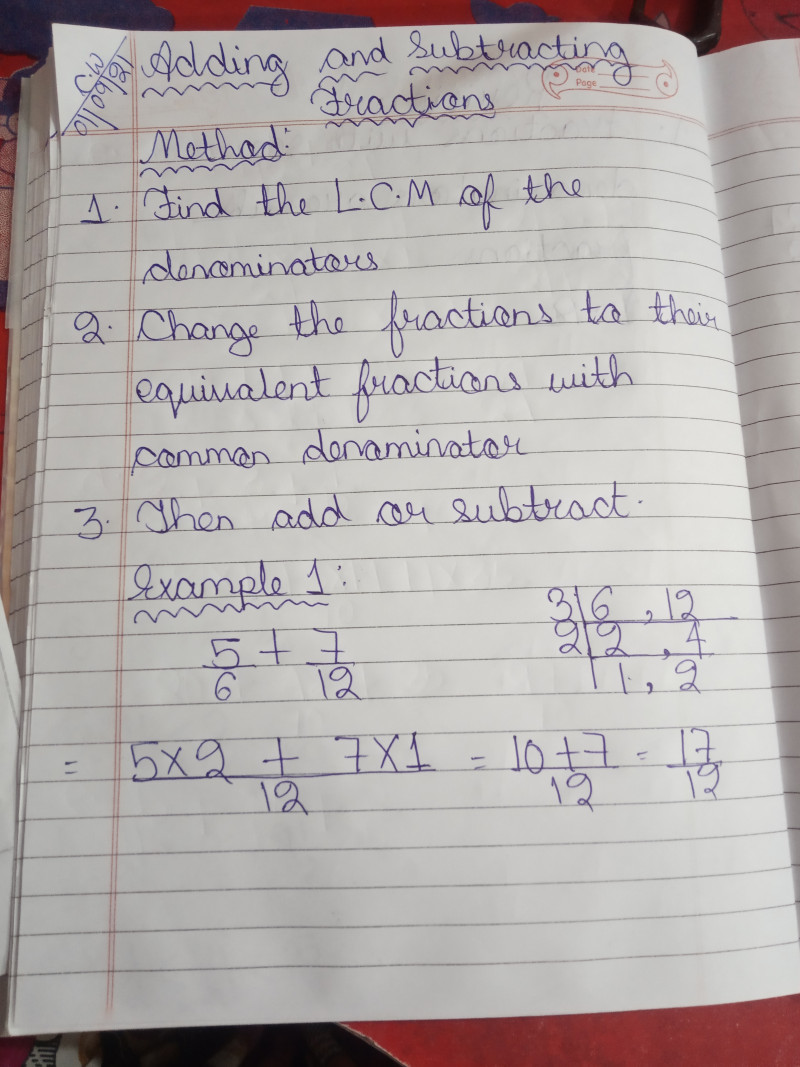 C.W
01/06/21
Adding and Subtracting
Fractions
Date
Page
Method:
1. Find the L.C.M of the
denominators
2. Change the fractions to their
equivalent fractions with
common denominator
3. Then add or subtract.
Example 1:
5/6 + 7/12
3|6, 12
2|2, 4
|1, 2
= 5×2 + 7×1/12 = 10+7/12 = 17/12